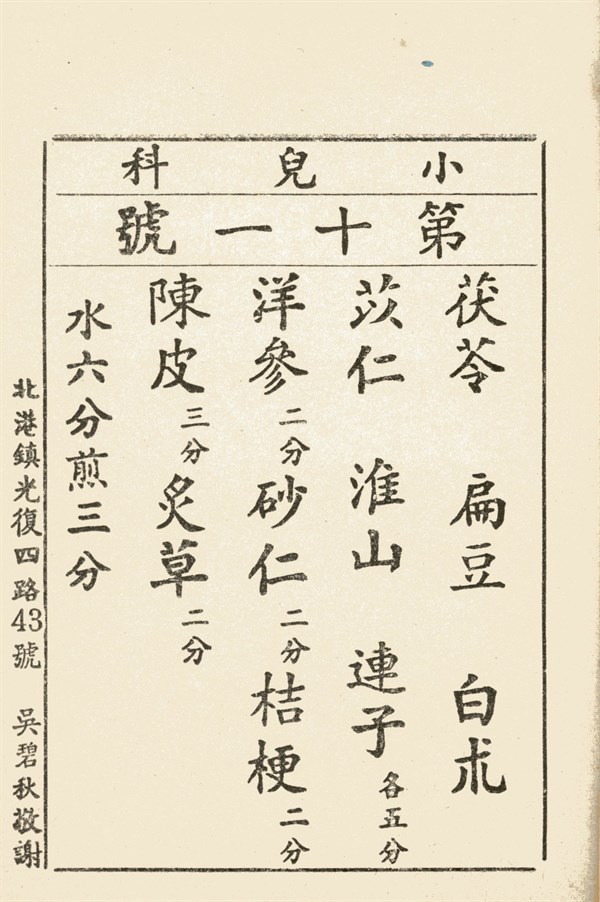 小兒科
第十一號
茯苓　扁豆　白朮
苡仁　淮山　連子各五分
洋參二分砂仁二分桔梗二分
陳皮三分炙草二分
水六分煎三分
北港鎮光復四路43號　吳碧秋敬謝